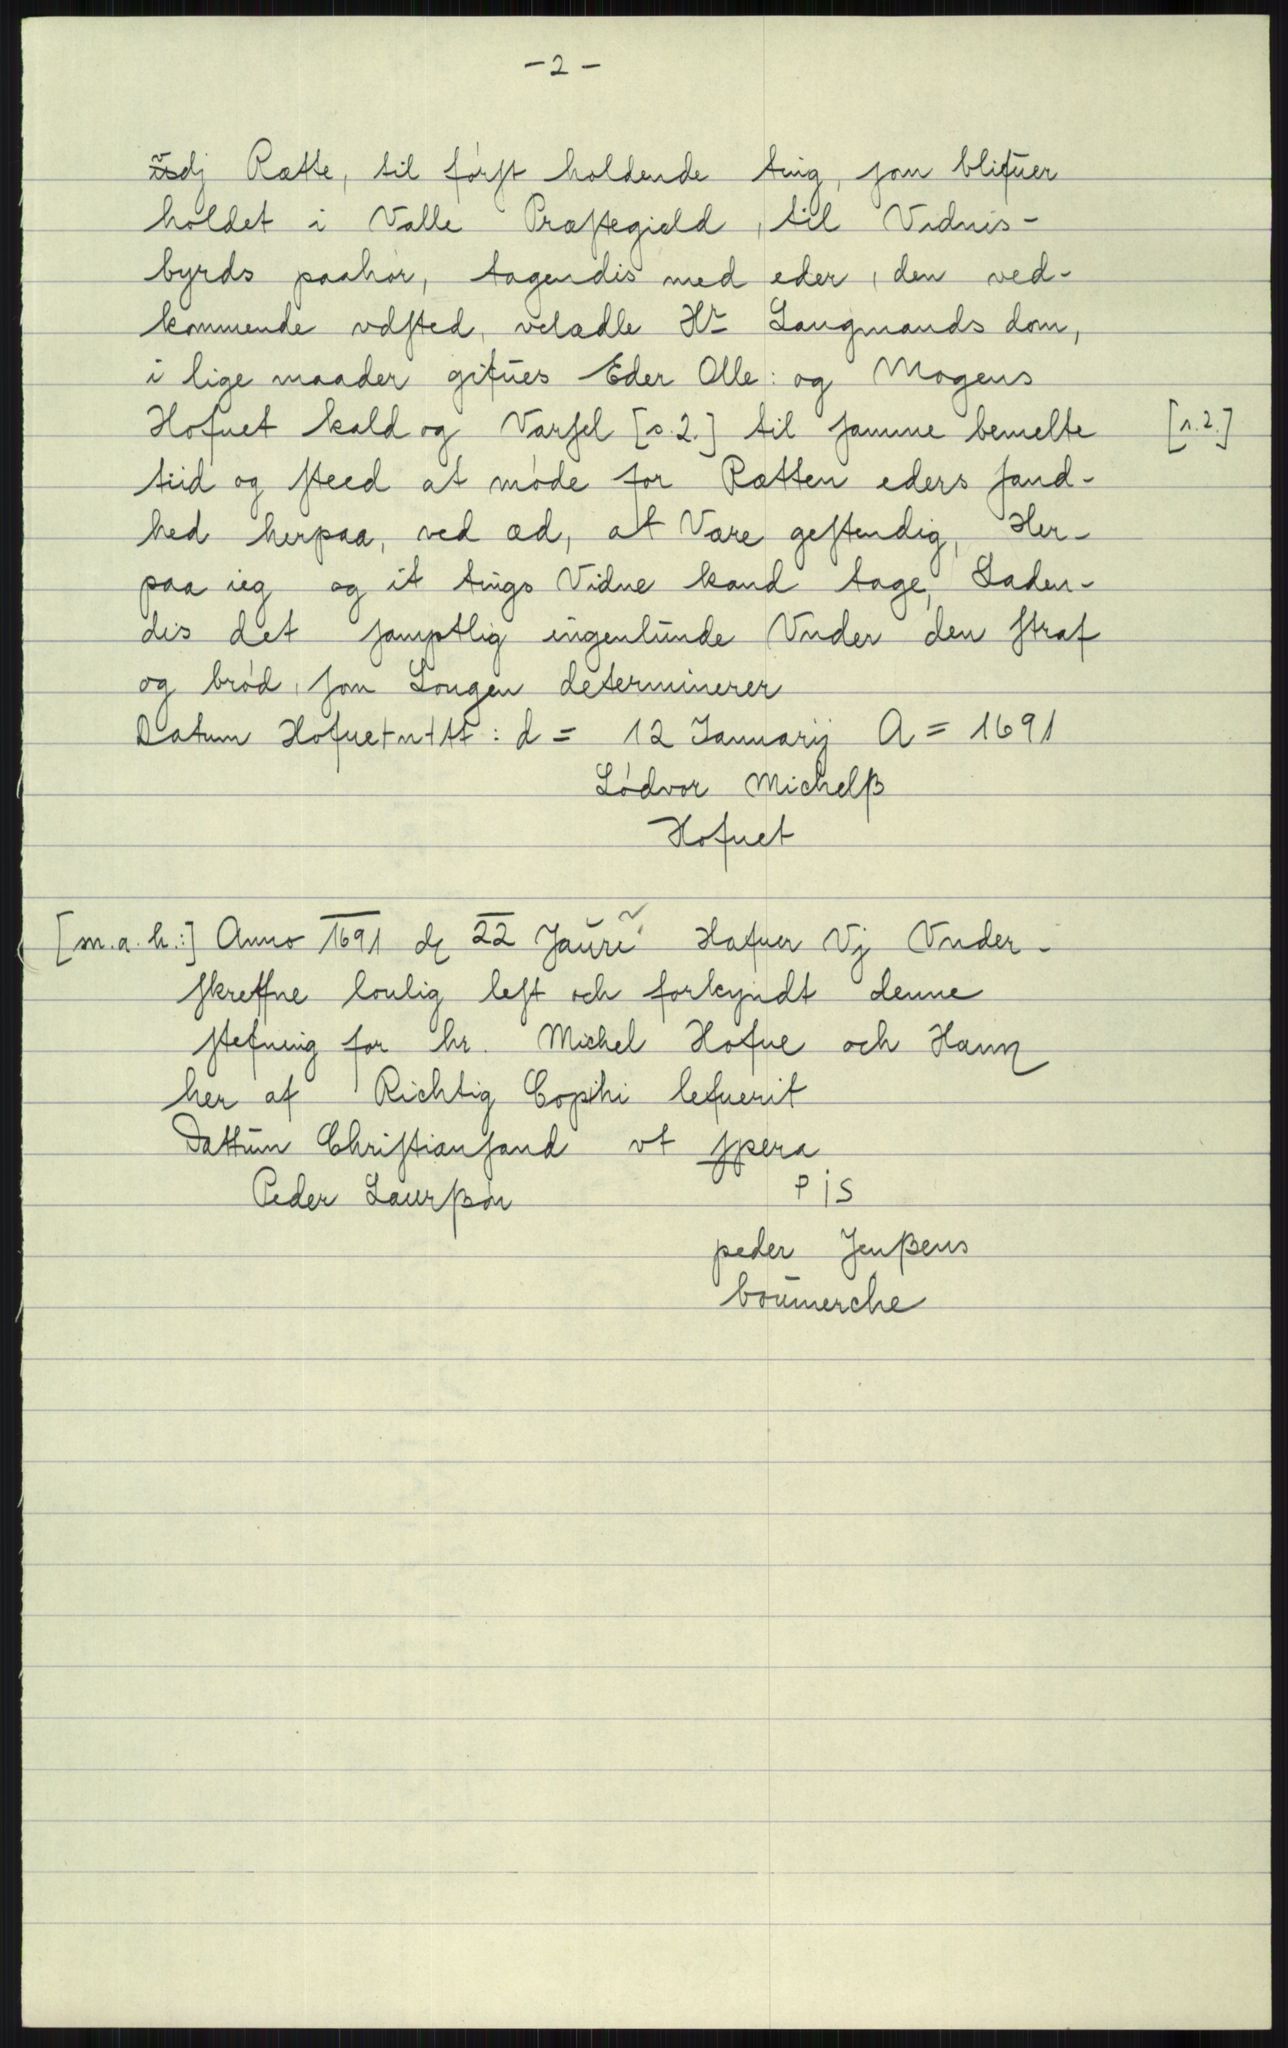 - 2 -
udj Rætte, til først holdende ting, som blifuer
holdet i Valle Præstegield, til Vidnis-
byrds paahør, tagendis med eder, den ved-
kommende vdsted, velædle Hr Laugmands dom,
i lige maader gifues Eder Olle: og Mogens
Hofuet kald og Varsel [s. 2.] til samme bemelte [s. 2.]
tiid og steed at møde for Rætten eders sand-
hed herpaa, ved æd, at Være gestendig, Her-
paa ieg og it tings Vidne kand tage, Laden-
dis det samptlig ingenlunde Vnder den straf
og brød, som Lougen determinerer
Datum Hofuet : d = 12 Januarij A = 1691
Lódvor Michelß
Hofuet
[m.a.h.:] Anno 1691 d 22 Jauri Hafuer Vj Vnder-
skreffne loulig lest och forkyndt denne
stefning for hr. Michel Hofue och Hann
her af Richtig Cophi lefuerit
Dattum Christiansand vt spera
Peder Laurßøn PIS
peder Jenßens
boumerche